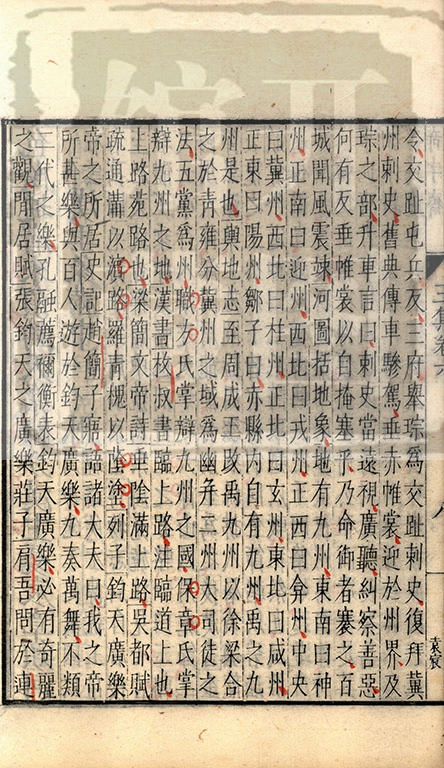 令交趾屯兵反三府舉琮為交趾刺史復拜冀
州刺史舊典傳車驂駕垂赤帷裳迎於州界及
琮之部升車言曰刺史當遠視廣聽糾察善惡
何有反垂帷裳以自掩塞乎乃命御者褰之百
城聞風震竦河圖括地象地有九州東南曰神
州正南曰迎州西南曰戎州正西曰弇州中央
曰冀州西北曰柱州正北曰玄州東北曰咸州
正東曰陽州鄒子曰赤縣內自有九州禹之九
州是也輿地志至周成王改禹九州以徐梁合
之於青雍分冀州之域為幽并二州大司徒之
法五黨為州職方氏掌辯九州之國保章氏掌
辯九州之地漢書枚叔書臨上路注臨道上也
上路苑路也梁簡文帝詩垂陰滿上路吳都賦
疏通溝以濱路羅青槐以蔭塗列子鈞天廣樂
帝之所居史記趙簡子寤語諸大夫曰我之帝
所甚樂與百人遊於鈞天廣樂九奏萬舞不類
三代之樂孔融薦禰衡表鈞天廣樂必有奇麗
之觀閒居賦張鈞天之廣樂莊子肩吾問於連
八